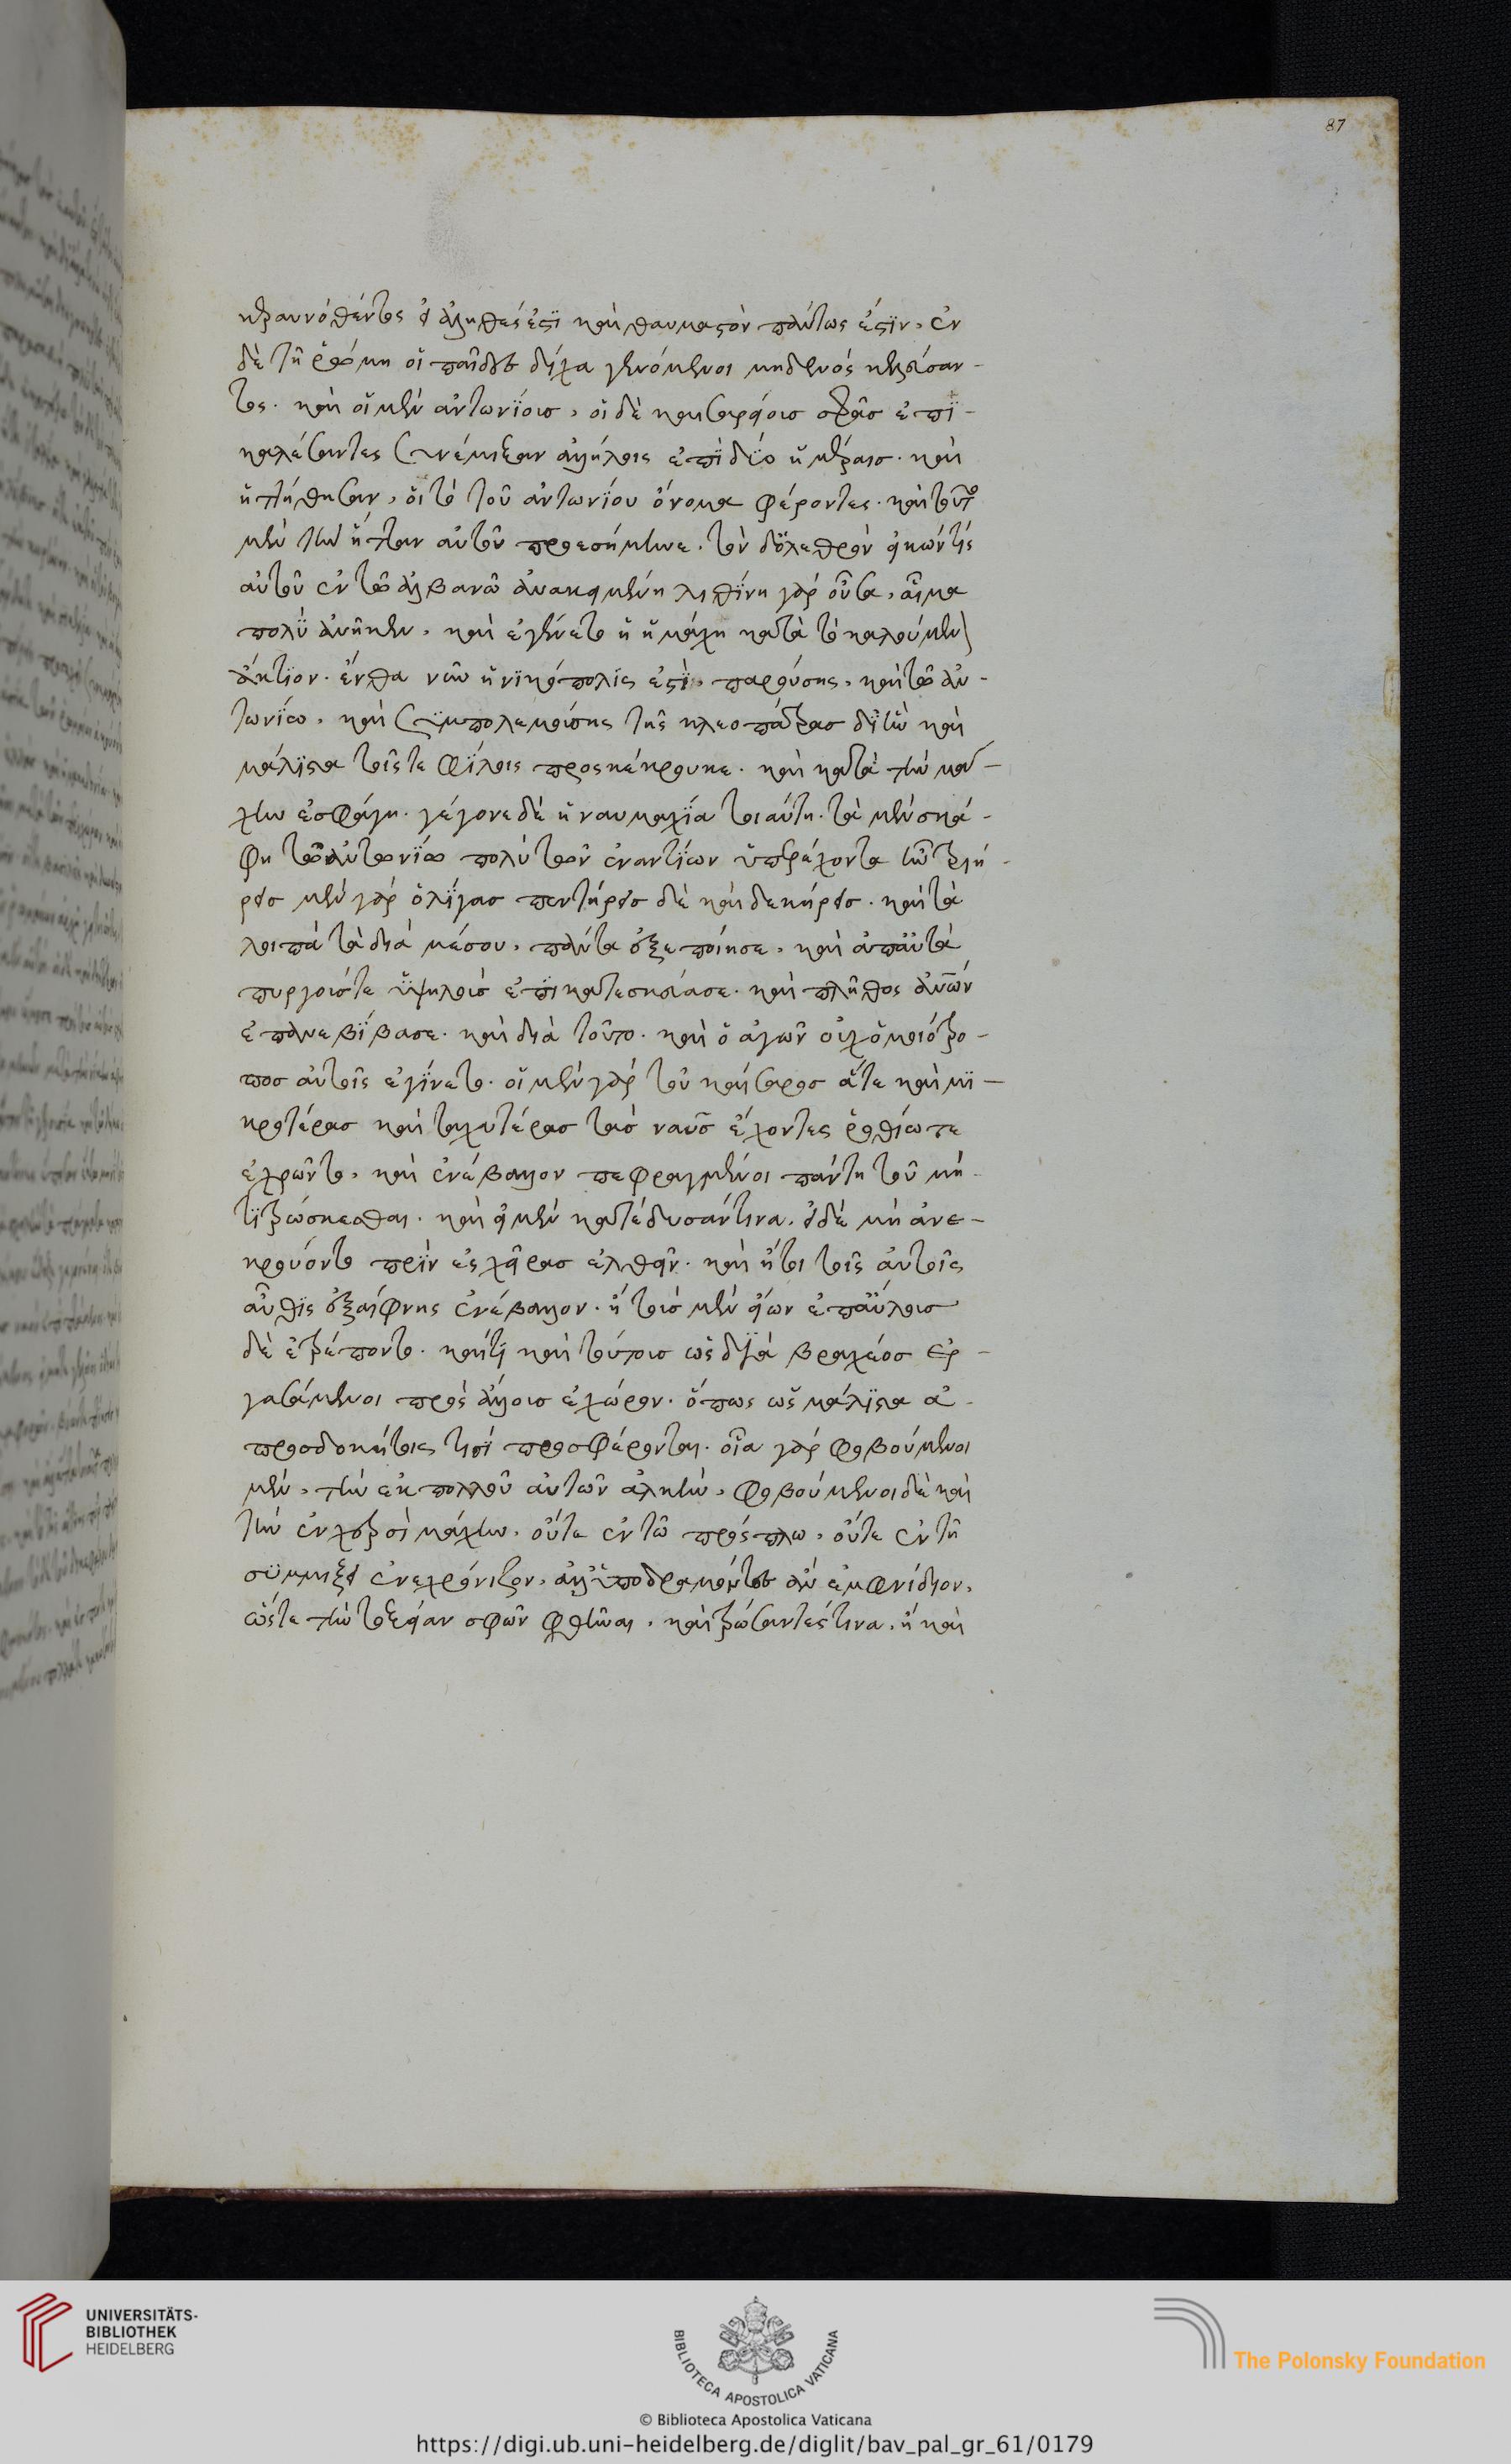 87
κεραυνόθέντος εἰ ἀληθές ἐστὶ καὶ θαυμαστὸν πάντως ἐστὶν, ἐν
δὲ τῇ ῥώμη οἱ παῖδες δίχα γενόμενοι μηδενός κελεύσαν-
τος. καὶ οἱ μὲν ἀντωνίοισ, οἱ δὲ καισαρείοισ σφᾶσ ἐπι-
καλέσαντες συνέμιξαν ἀλλήλοις ἐπὶ δύο ἡμέραισ. καὶ
ἡττήθησαν, οἱ τὸ τοῦ ἀντωνίου ὄνομα φέροντες. καὶ τοῦτο
μὲν τὴν ἧτταν αὐτοῦ προεσήμαινε. τὸν δὄλεθρὸν εἰκών τίς
αὐτοῦ ἐν τῶ ἀλβανῶ ἀνακειμένη λιθίνη γὰρ οὖσα, αἷμα
πολὺ ἀνῆκεν, καὶ ἐγένετο ἡ μάχη κατὰ τὸ καλούμεν
ἄκτιον. ἔνθα νῦν ἡ νικόπολίς ἐστὶ, παρούσης, καὶ τῶ ἀν-
τωνίω, καὶ συμπολεμούσης τῆς κλεοπάτρασ δι ἣν καὶ
μάλιστα τοῖς τε φίλοις προσκέκρουκε. καὶ κατὰ τὴν μά-
χην ἐσφάγη. γέγονε δὲ ἡ ναυμαχία τοιαύτη. τὰ μὲν σκά-
φη τῶ ἀντωνίω πολὺ τῶν ἐναντίων ὑπερέχοντα ἦν τριή-
ρεισ μὲν γὰρ ὀλίγασ πεντήρεισ δὲ καὶ δεκήρεισ. καὶ τὰ
λοιπὰ τὰ διὰ μέσου, πάντα ἐξεποίησε, καὶ ἐπ αὐτὰ
πύργοις τε ὑψηλοῖσ ἐπικατεσκεύασε. καὶ πλῆθος ἀνων
ἐπανεβίβασε. καὶ διὰ τοῦτο. καὶ ὁ ἀγὼν οὐχ ὁμοιότρο-
ποσ αὐτοῖς ἐγίνετο. οἱ μὲν γὰρ τοῦ καίσαροσ ἅτε καὶ μι-
κροτέρασ καὶ ταχυτέρασ τὰσ ναῦσ ἔχοντες ῥοθίω τε
ἐχρῶντο, καὶ ἐνέβαλλον πεφραγμένοι πάντη τοῦ μή
τιτρώσκεσθαι. καὶ εἰ μὲν κατέδυσάν τινα. εἰ δὲ μὴ ἀνε-
κρούοντο πρὶν ἐς χεῖρασ ἐλθεῖν. καὶ ἤτοι τοῖς αὐτοῖς
αὖθις ἐξαίφνης ἐνέβαλλον. ἢ τοὺσ μὲν εἴων ἐπ ἄλλουσ
δὲ ἐτρέποντο. καί τι καὶ τούτοισ ὡς διὰ βραχέοσ ἐρ-
γασάμενοι πρὸς ἄλλουσ ἐχώρουν. ὅπως ὡς μάλιστα ἀ-
προσδοκήτοις τισὶ προσφέρονται. οἷα γὰρ φοβούμενοι
μὲν, τὴν ἐκ πολλοῦ αὐτῶν ἀλκὴν, φοβούμενοι δὲ καὶ
τὴν ἐν χερσὶ μάχην, οὔτε ἐν τῶ πρόσπλω, οὔτε ἐν τῇ
συμμίξει ἐνεχρόνιζον, ἀλλ ὑποδραμόντες ἂν ἐμφνίδιον,
ὥστε τὴν τοξείαν σφῶν φθῆναι, καὶ τρώσαντές τινα, ἢ καὶ
UNIVERSITÄTS-
BIBLIOTHEK
HEIDELBERG
BIBLIOTECA APOSTOLICA VATICANA
© Biblioteca Apostolica Vaticana
The Polonsky Foundation
https://digi.ub.uni-heidelberg.de/diglit/bav_pal_gr_61/0179